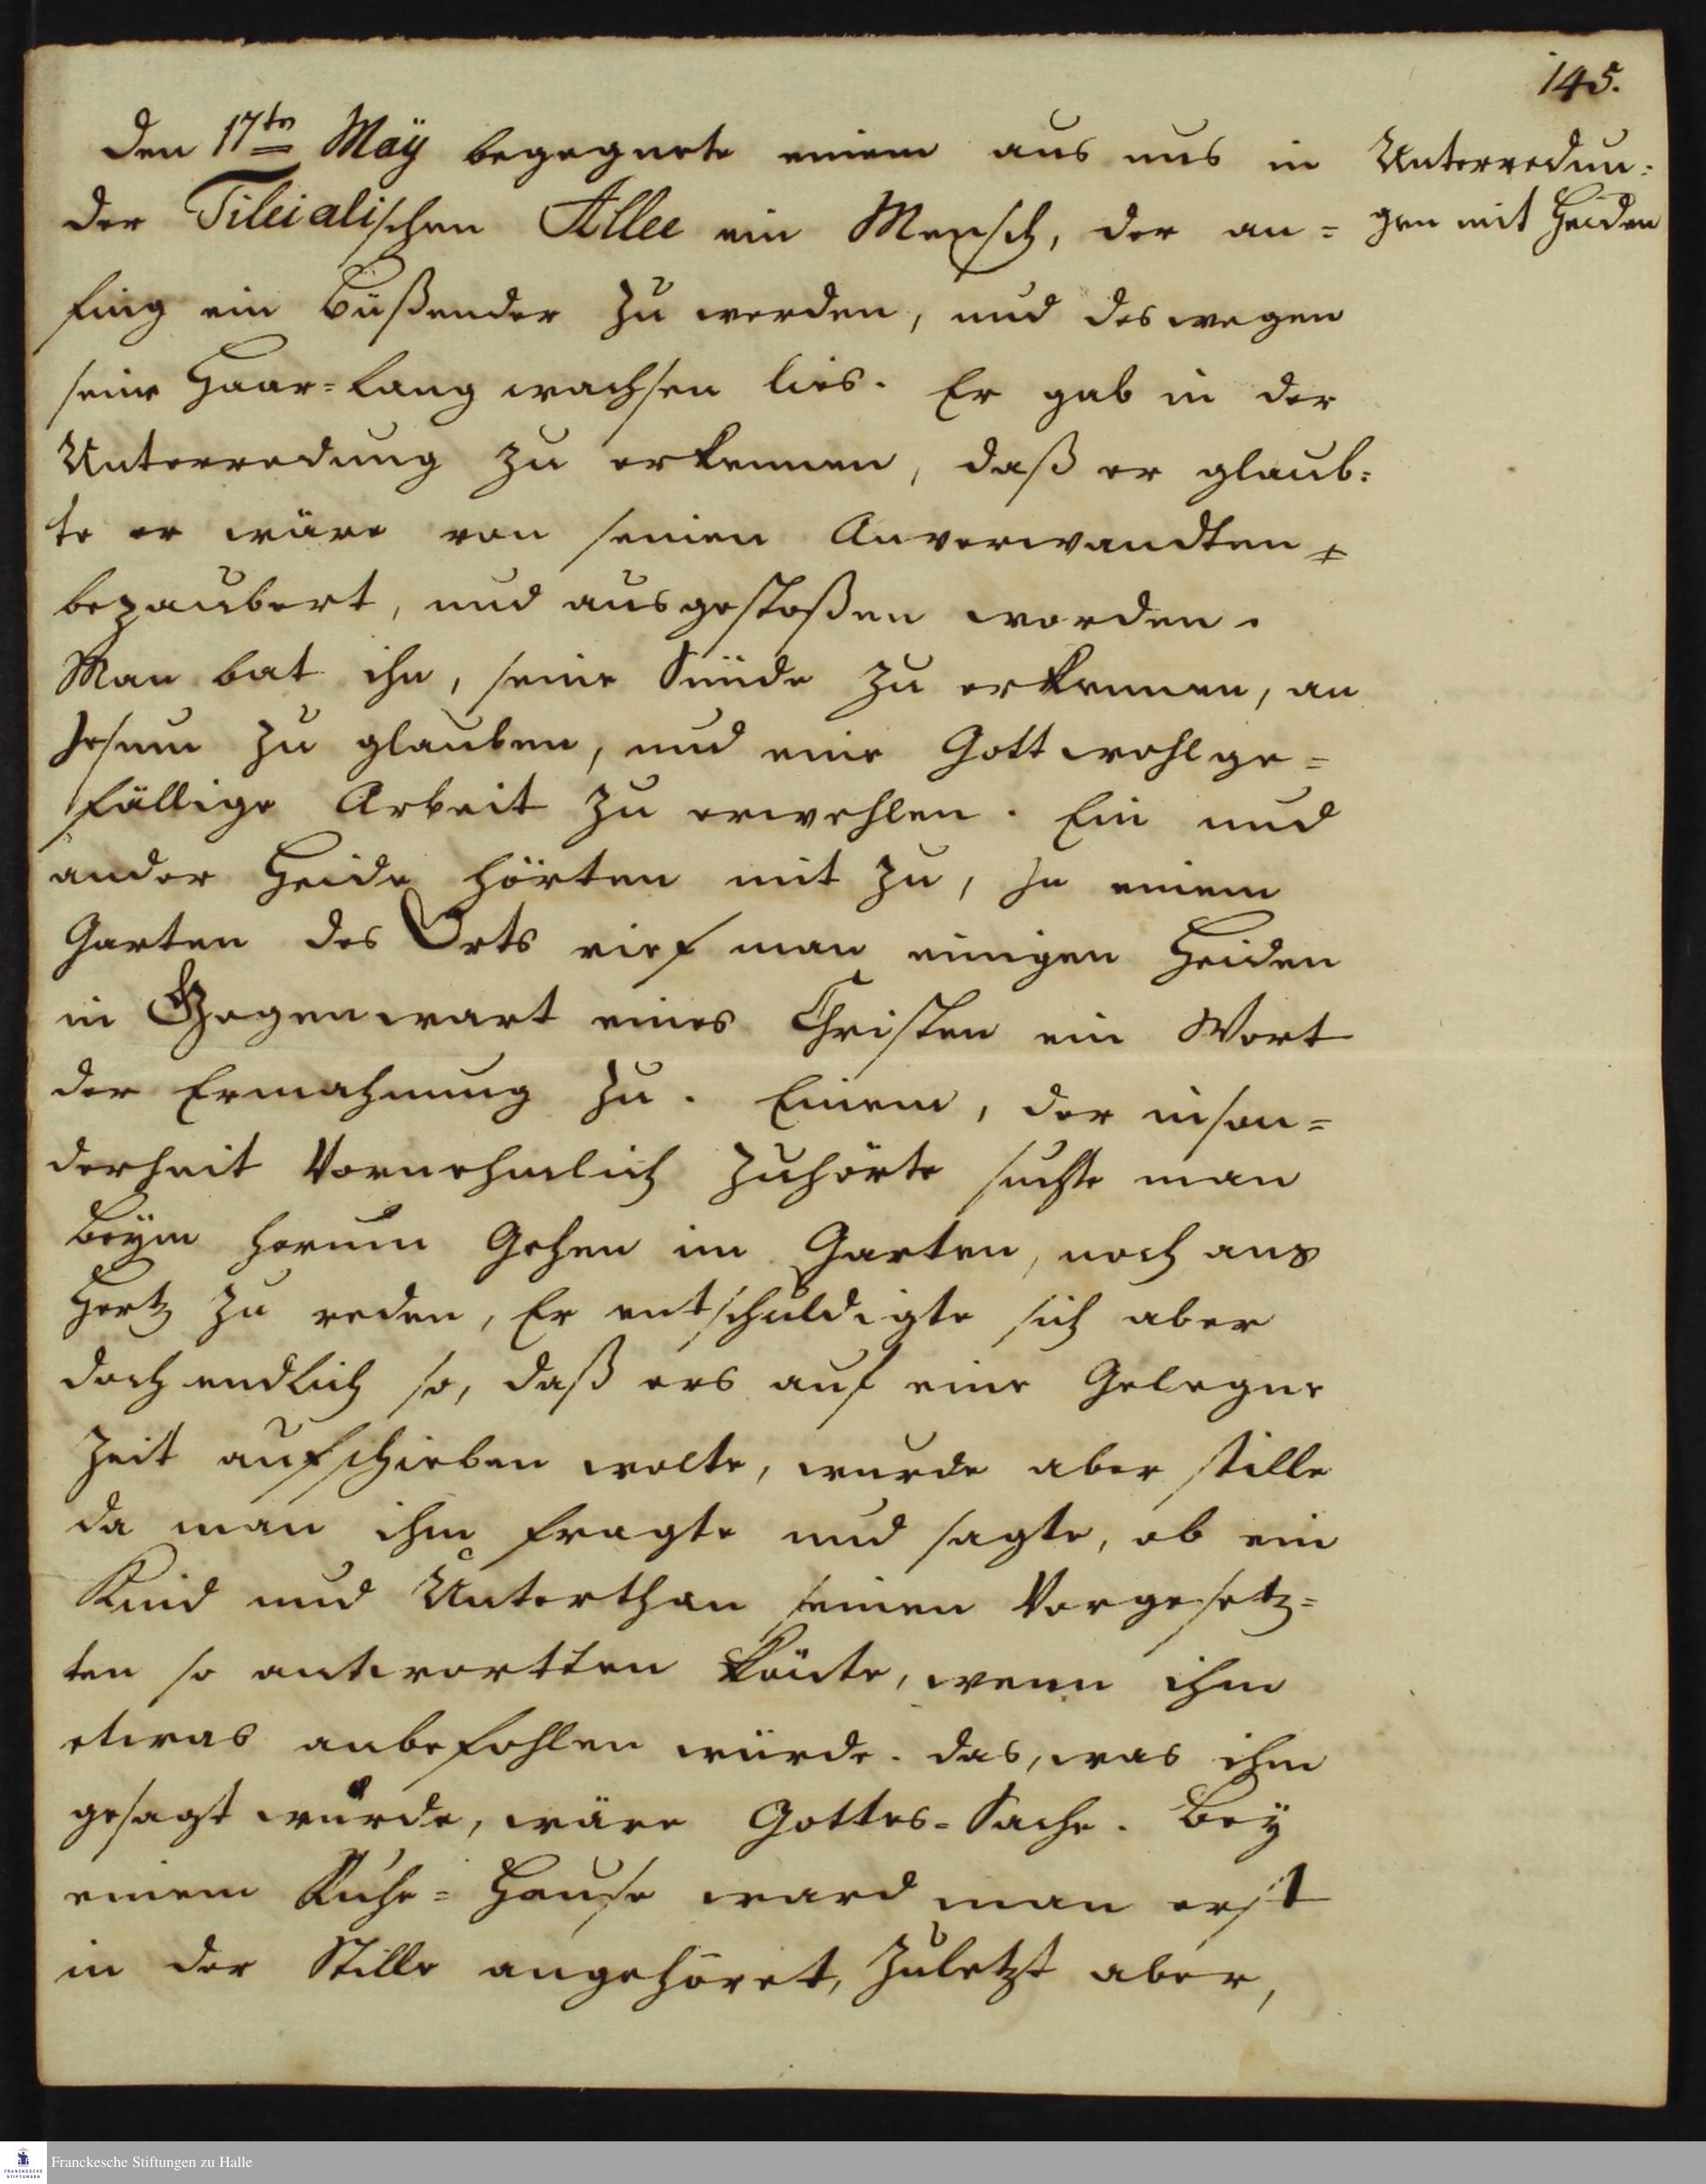 145.
Den 17ten Maÿ begegnete einem aus uns in
der Tileialischen Allee ein Mensch, der an=
fing ein büßender zu werden, und deswegen
seine Haar=lang wachsen lies. Er gab in der
Unterredung zu erkennen, daß er glaub=
te er wäre von seinen Anverwandten
bezaubert, und ausgestoßen worden.
Man bat ihn, seine Sünde zu erkennen, an
Jesum zu glauben, und eine Gott wohlge=
fällige Arbeit zu erwehlen. Ein und
ander Heide hörten mit zu, In einem
Garten des Orts rief man einigen Heiden
in Gegenwart eines Christen ein Wort
der Ermahnung zu. Einem, der inson=
derheit Vornehmlich zuhörte suchte man
beÿm herum Gehen im Garten, noch ans
Hertz zu reden, Er entschuldigte sich aber
doch endlich so, daß ers auf eine Gelegne
Zeit aufschieben wolte, wurde aber stille
da man ihn fragte und sagte, ob ein
Kind und Unterthan seinen Vorgesetz=
ten so antwortten könte, wenn ihm
etwas anbefohlen würde. das, was ihm
gesagt würde, wäre Gottes=Sache. Beÿ
einem Ruhe=Hause ward man erst
in der Stille angehöret, zuletzt aber,
Unterredun=
gen mit Heiden
Franckesche Stiftungen zu Halle